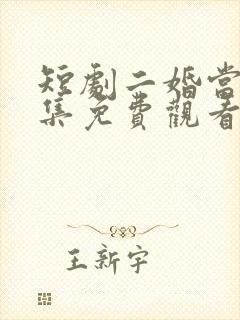 短劇二婚當
集免費觀看
王新宇